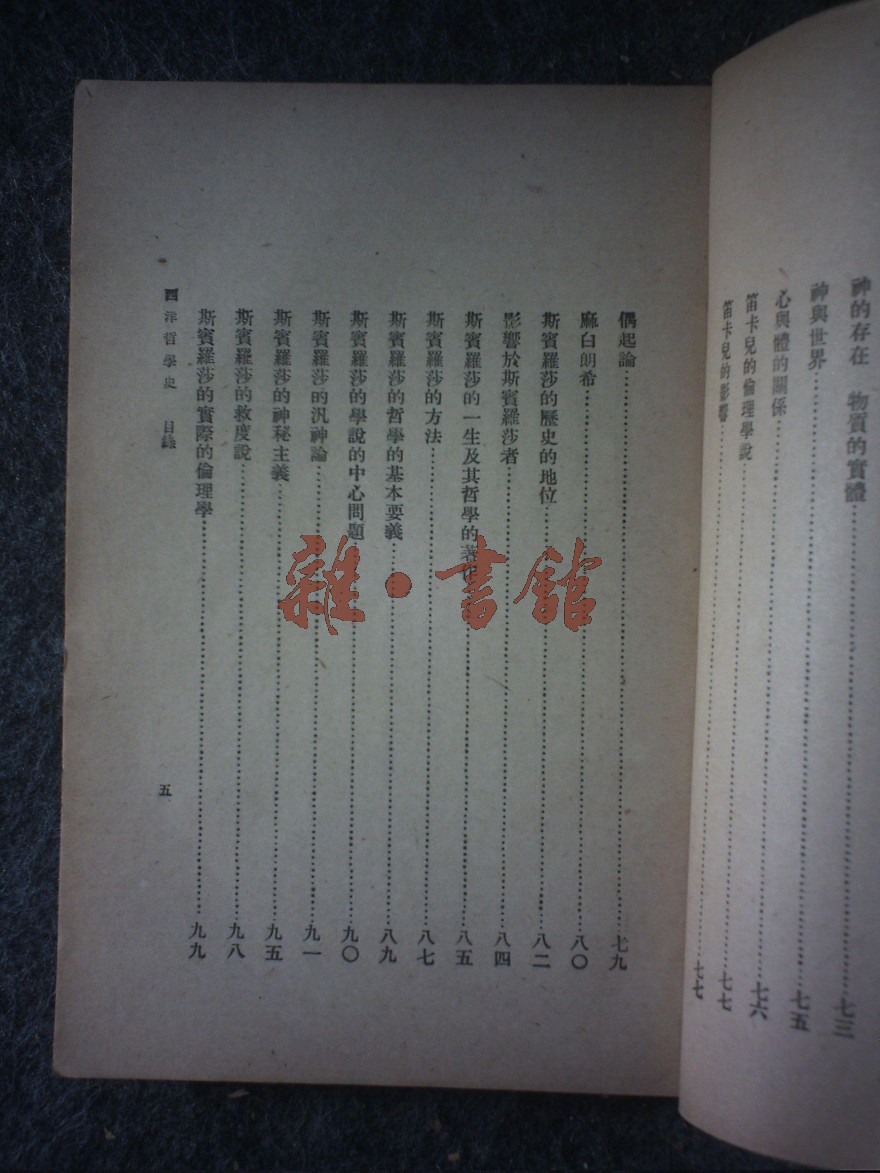 神的存在　物質的實體……七三
神與世界……七五
心與體的關係……七六
笛卡兒的倫理學說……七七
笛卡兒的影響……七七
偶起論……七九
麻白朗希……八〇
斯賓羅莎的歷史的地位……八二
影響於斯賓羅莎者……八四
斯賓羅莎的一生及其哲學的著作……八五
斯賓羅莎的方法……八七
斯賓羅莎的哲學的基本要義……八九
斯賓羅莎的學說的中心問題……九〇
斯賓羅莎的汎神論……九一
斯賓羅莎的神秘主義……九五
斯賓羅莎的救度說……九八
斯賓羅莎的實際的倫理學……九九
西洋哲學史　目錄　五
雜·書館